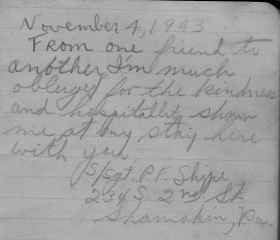 November 4, 1943
From one friend to
another I'm much
obliege for the kindness
and hospitality shown
me at my stay here
with you
S/Sgt. P.P.
234 S. 2nd St.
Shamokin, Pa.